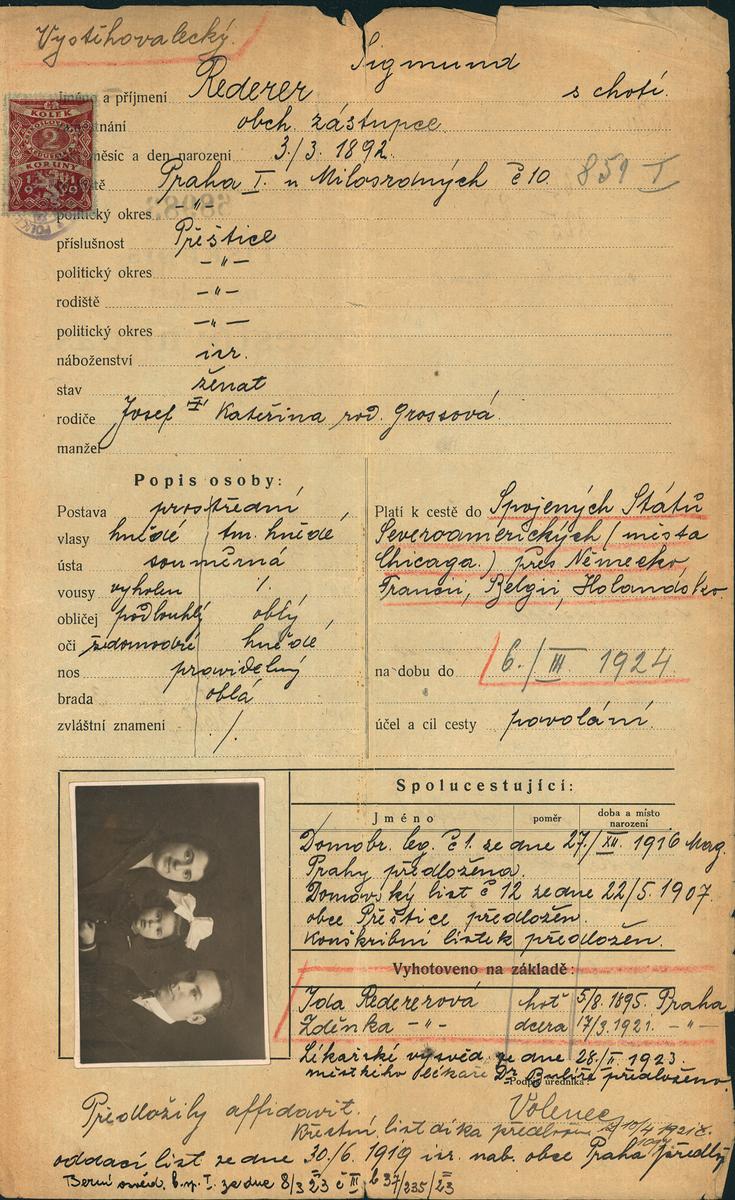 Vystěhovalecký.
Sigmund
jméno a příjmení Rederer s chotí.
KOLEK
2
KORUNY
obch. zástupce
měsíc a den narození 3./3. 1892.
Praha I. u Milosrdných č 10. 859 I
politický okres -"-
příslušnost Přeštice
politický okres -"-
rodiště -"-
politický okres -"-
náboženství isr.
stav ženat
rodiče Josef Kateřina rod. Grossová.
manžel
Popis osoby:
Postava prostřední
vlasy hnědé tm. hnědé
ústa souměrná
vousy vyholen /.
obličej podlouhlý oblý
oči šedomodré hnědé
nos pravidelný
brada oblá
zvláštní znamení /.
Platí k cestě do Spojených Států
Severoamerických (města
Chicaga.) přes Německo,
Francii, Belgii, Holandsko
na dobu do 6./III 1924
účel a cíl cesty povolání.
Spolucestující:
Jméno poměr doba a místo narození
Domobr. leg. č 1. ze dne 27./XII. 1916 Mag.
Prahy předložena.
Domovský list č 12 ze dne 22/5. 1907.
obce Přeštice předložen.
Konškribní lístek předložen.
Vyhotoveno na základě:
Ida Redererová choť 5/8. 1895. Praha
Zděnka -"- dcera 17/3. 1921. -"-
Lékařské vysvěd. ze dne 28/II. 1923.
městského lékaře Dr. předloženo.
Podpis úředníka:
Volenec
Předložily affidavit.
Křestní list dítka předložen 10/4 1921
oddací list ze dne 30./6. 1919 isr. náb. obce Praha předlž
Berní osvěd. b. sp. I. ze dne 8/3 23 č III b 37/235/23